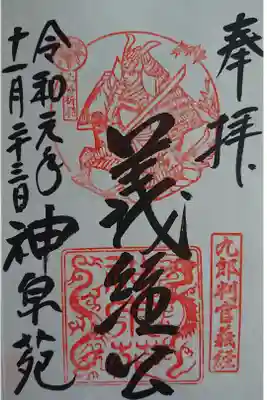 奉拝
義経公
九郎判官義経
令和元年
十一月二十三日
神泉苑